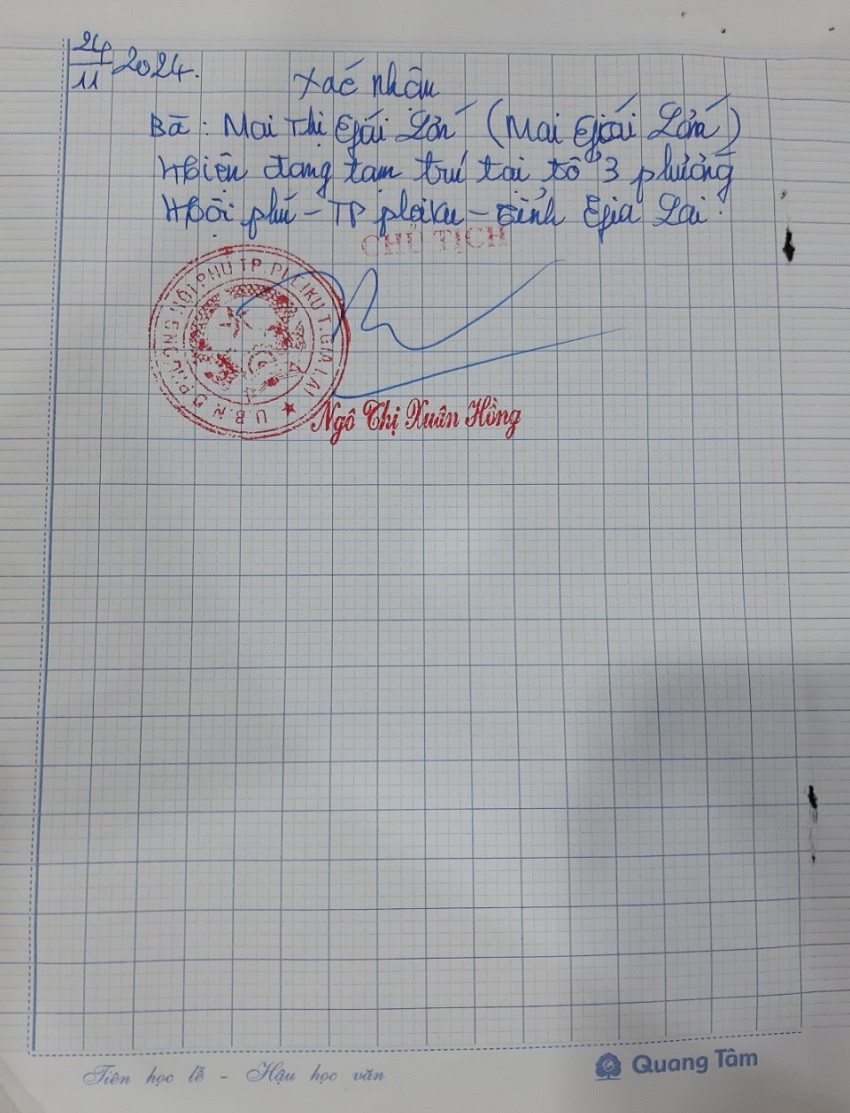 24/11 2024.
Xác nhận
Bà : Mai Thị Gái Lớn (Mai Gái Lớn)
Hiện đang tạm trú tại tổ 3 phường
Hội phú - TP pleiku - tỉnh Gia Lai.
CHỦ TỊCH
U.B.N.D PHƯỜNG HỘI PHÚ TP. PLEIKU T. GIA LAI
Ngô Thị Xuân Hồng
Tiên học lễ - Hậu học văn
Quang Tâm